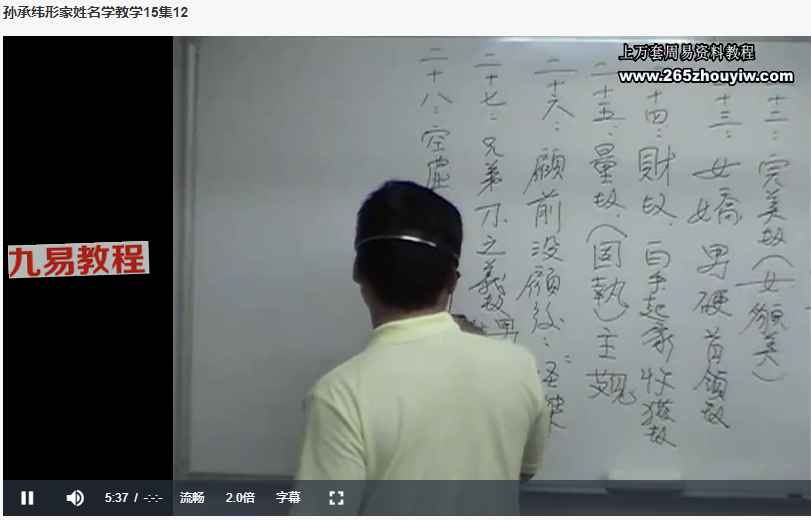 孙承纬形家姓名学教学15集12
上万套周易资料教程
www.265zhouyiw.com
九易教程
十二：完美数（女貌美）
十三：女嬌 男硬 首領数
十四：財数．白手起家收獲数
二十五：量数．（固執）主觀
二十六：顧前没顧後：
二十七：兄弟不之義数男
二十八：空虛
5:37 / -:-:-
流畅
2.0倍
字幕